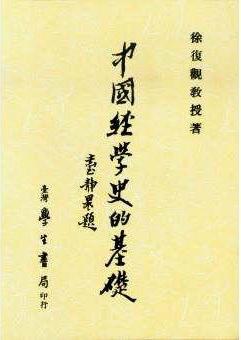 徐復觀教授著
中國經學史的基礎
臺靜農題
臺灣學生書局印行